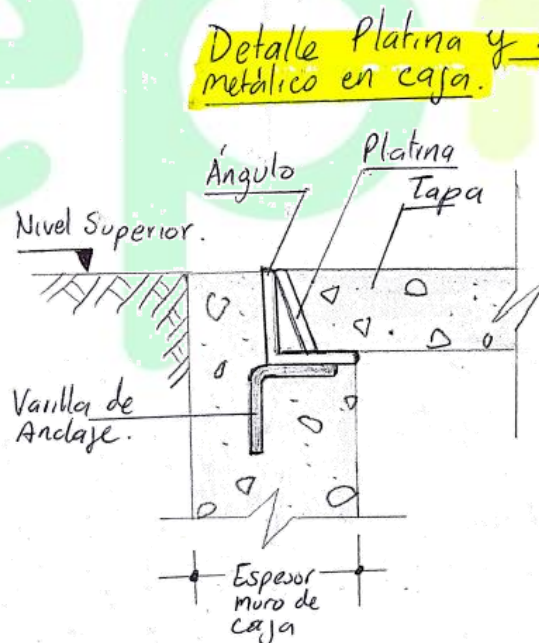 Detalle Platina y
metálico en caja.
Ángulo
Platina
Tapa
Nivel Superior.
Varilla de
Anclaje.
Espesor
muro de
caja